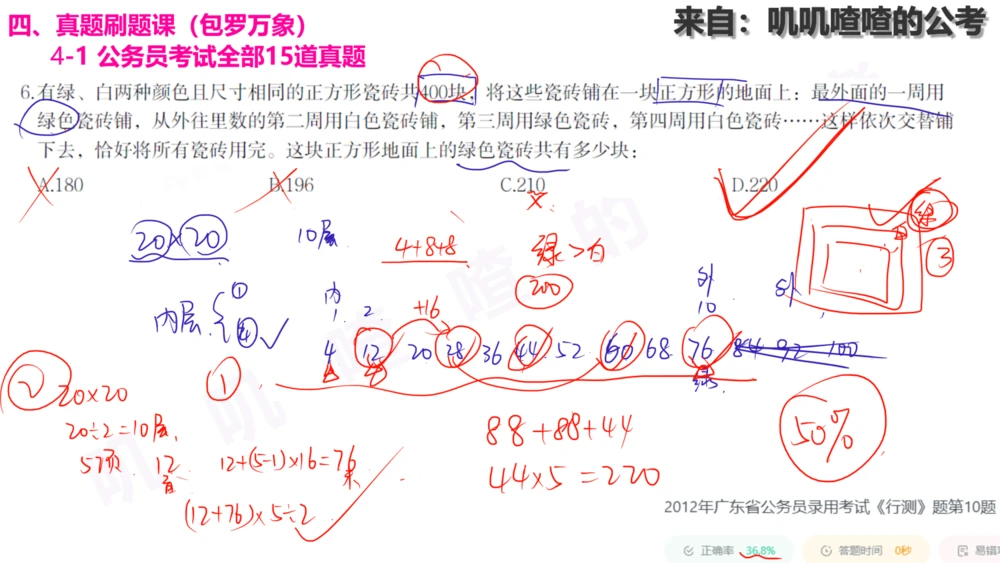 四、真题刷题课（包罗万象）
来自：叽叽喳喳的公考
4-1 公务员考试全部15道真题
6.有绿、白两种颜色且尺寸相同的正方形瓷砖共400块，将这些瓷砖铺在一块正方形的地面上：最外面的一周用
绿色瓷砖铺，从外往里数的第二周用白色瓷砖铺，第三周用绿色瓷砖，第四周用白色瓷砖……这样依次交替铺
下去，恰好将所有瓷砖用完。这块正方形地面上的绿色瓷砖共有多少块：
A.180 B.196 C.210 D.220
20×20 10层 4+8+8 绿>白
200
绿
③
内层 ① ④
内 1 2 +16 外 10 外
4 12 20 28 36 44 52 60 68 76 84 92 100
绿
② ① 50%
20×20
20÷2=10层
5项 12首 12+(5-1)×16=76末
(12+76)×5÷2
88+88+44
44×5=220
2012年广东省公务员录用考试《行测》题第10题
正确率 36.8% 答题时间 0秒 易错
叽叽喳喳的